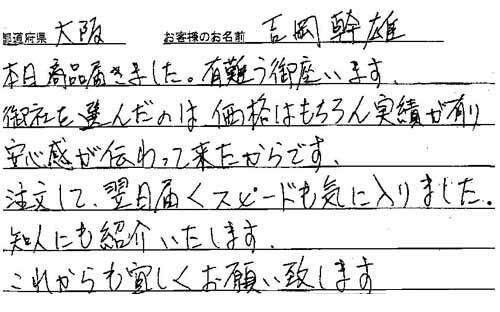 都道府県 大阪 お客様のお名前 吉岡幹雄
本日商品届きました。有難う御座います、
御社を選んだのは価格はもちろん実績が有り
安心感が伝わって来たからです、
注文して、翌日届くスピードも気に入りました。
知人にも紹介いたします、
これからも宜しくお願い致します